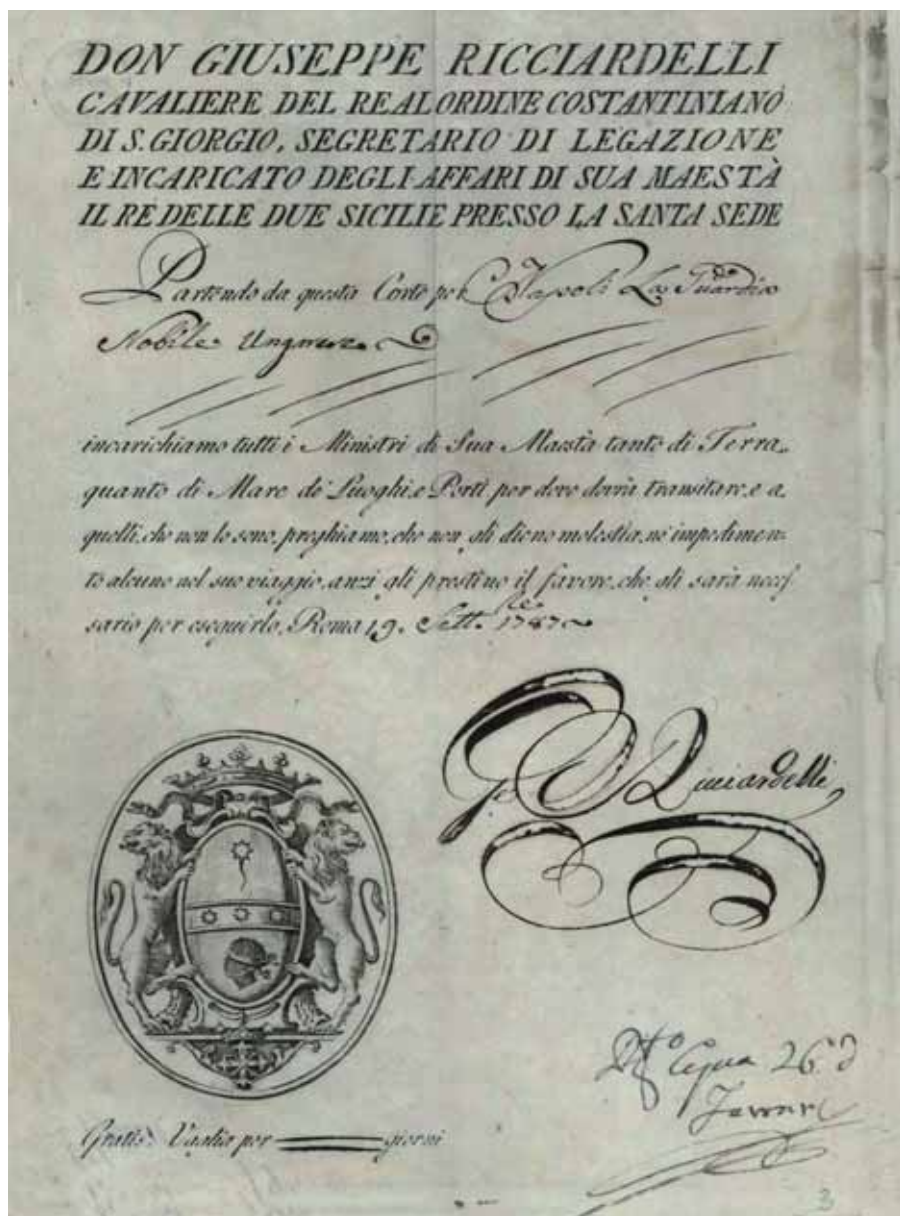 DON GIUSEPPE RICCIARDELLI
CAVALIERE DEL REAL ORDINE COSTANTINIANO
DI S. GIORGIO, SEGRETARIO DI LEGAZIONE
E INCARICATO DEGLI AFFARI DI SUA MAESTÀ
IL RE DELLE DUE SICILIE PRESSO LA SANTA SEDE
Partendo da questa Corte per Napoli La Guardia
Nobile
incarichiamo tutti i Ministri di Sua Maestà tanto di Terra,
quanto di Mare de' Luoghi, e Porti per dove dovrà transitare, e a
quelli, che non lo sono, preghiamo, che non gli dieno molestia, nè impedimen-
to alcuno nel suo viaggio, anzi gli prestino il favore, che gli sarà neces
sario per eseguirlo, Roma 19. Sett.bre 1787
Ricciardelli
Gratis: Vaglia per giorni
3